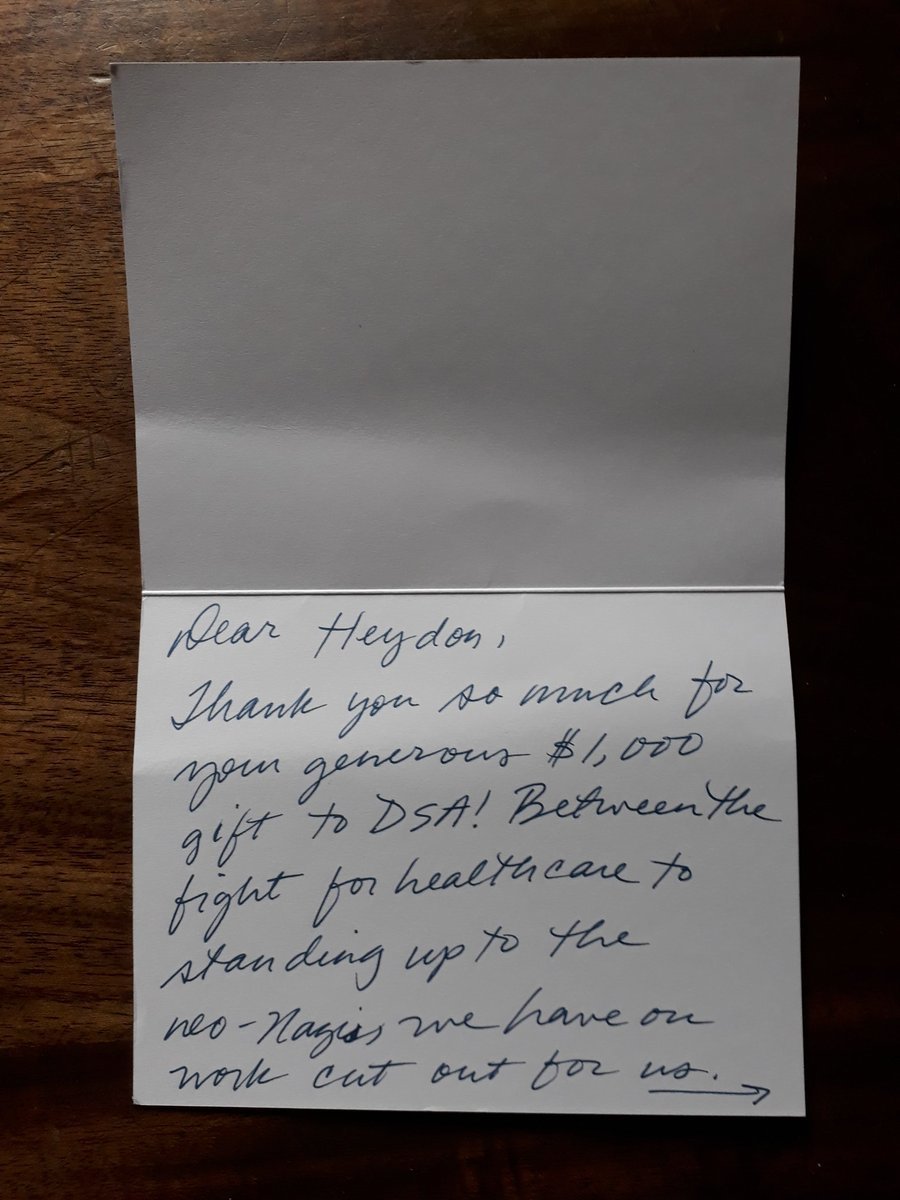 Dear Heydon,
Thank you so much for
your generous $1,000
gift to DSA! Between the
fight for healthcare to
standing up to the
neo-Nazis we have our
work cut out for us. →